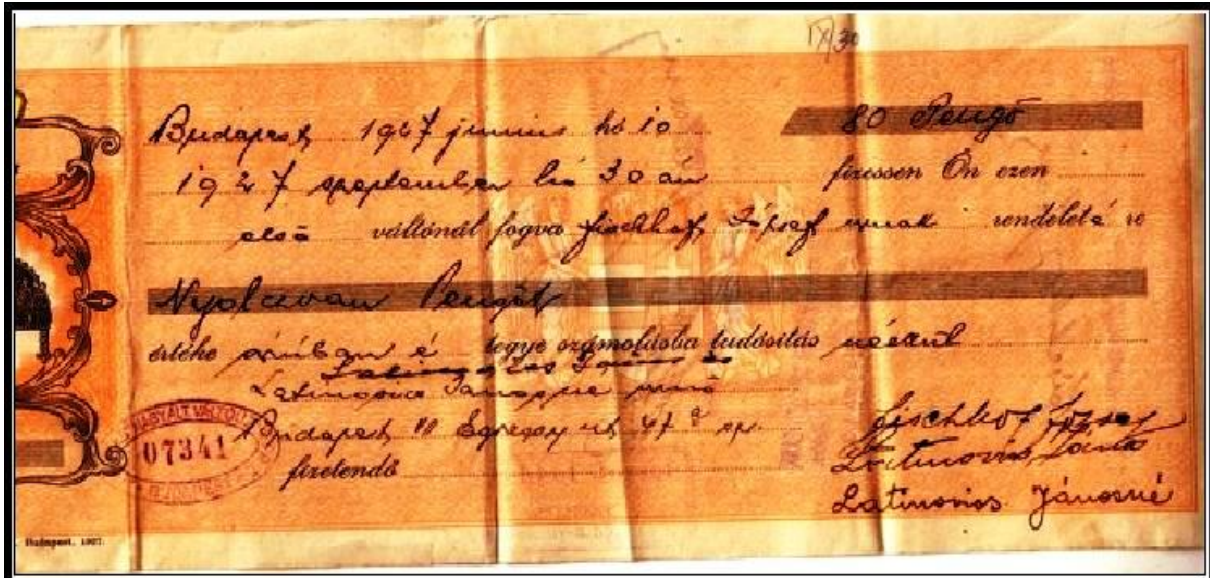 IX/30
Budapest, 1927 junius hó 10 80 Pengő
1927 szeptember hó 30 án fizessen Ön ezen
első váltónál fogva Fischhof József urnak rendeleté re
Nyolcvan Pengőt
értéke áruban é tegye számolásba tudósitás nélkül
Latinovics
Budapest, Egressy ut 47
07341
BUDAPEST
fizetendő
Fischhof József
Latinovits János
Latinovios Jánosné
Budapest, 1927.